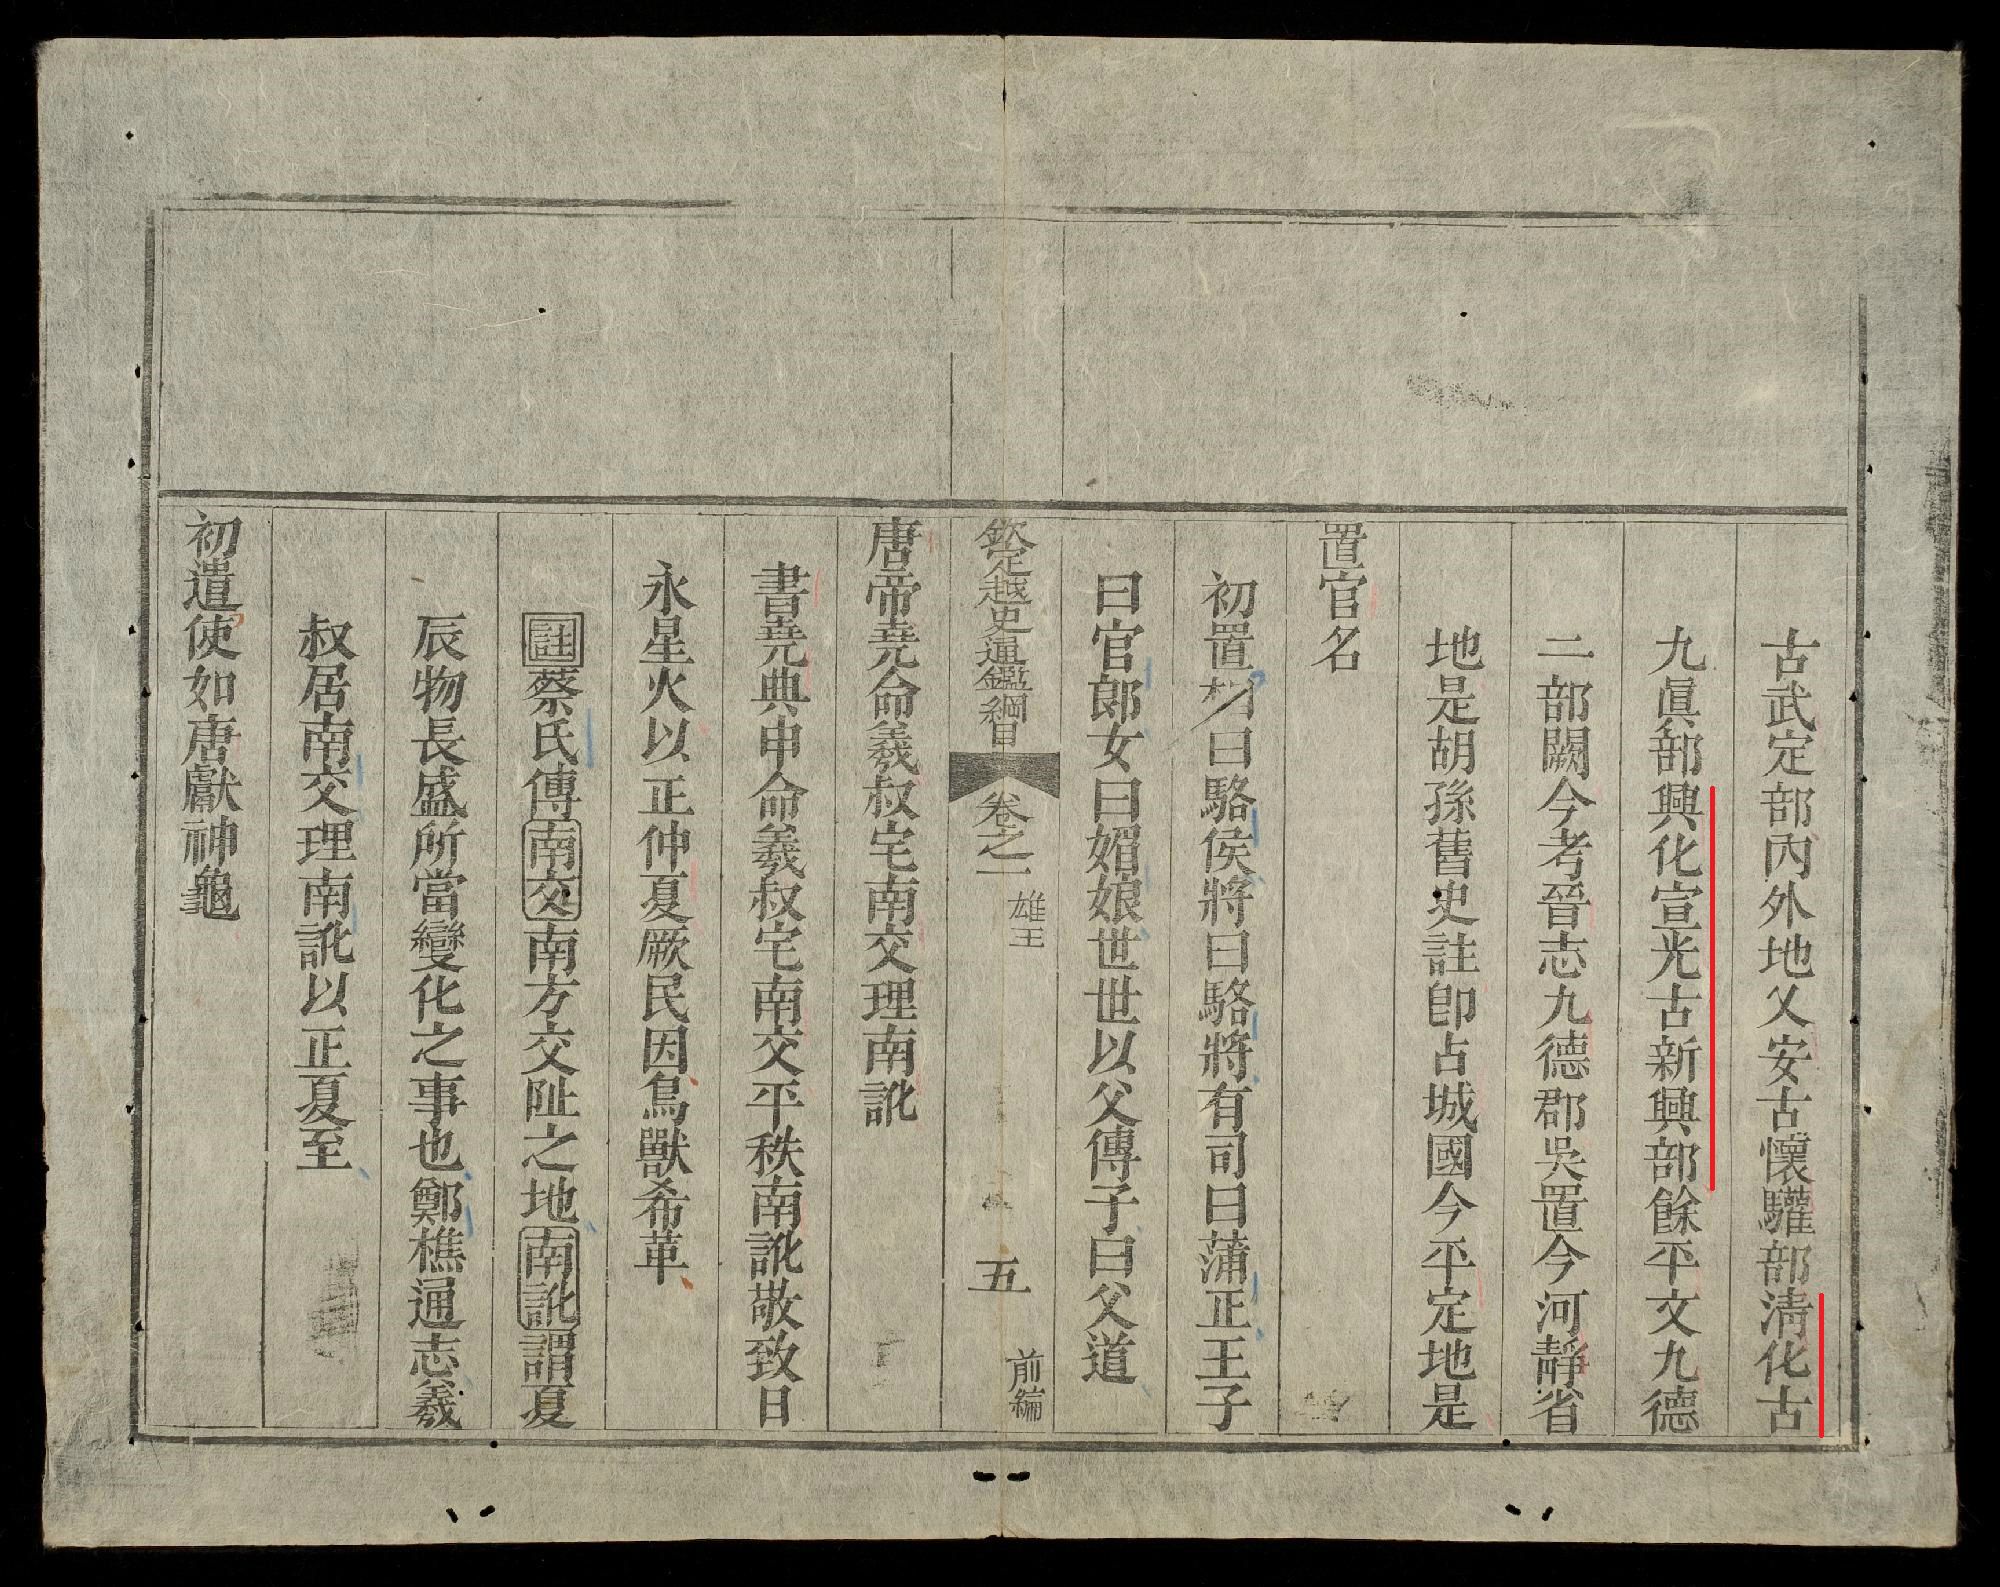 古武定部內外地乂安古懷驩部淸化古
九眞部興化宣光古新興部餘平文九德
二部闕今考晉志九德郡吳置今河靜省
地是胡孫舊史註卽占城國今平定地是
置官名
初置相曰駱侯將曰駱將有司曰蒲正王子
曰官郞女曰媚娘世世以父傳子曰父道
欽定越史通鑑綱目 卷之一 雄王 五 前編
唐帝堯命羲叔宅南交理南訛
書堯典申命羲叔宅南交平秩南訛敬致日
永星火以正仲夏厥民因鳥獸希革
註蔡氏傳南交南方交阯之地南訛謂夏
辰物長盛所當變化之事也鄭樵通志羲
叔居南交理南訛以正夏至
初遣使如唐獻神龜